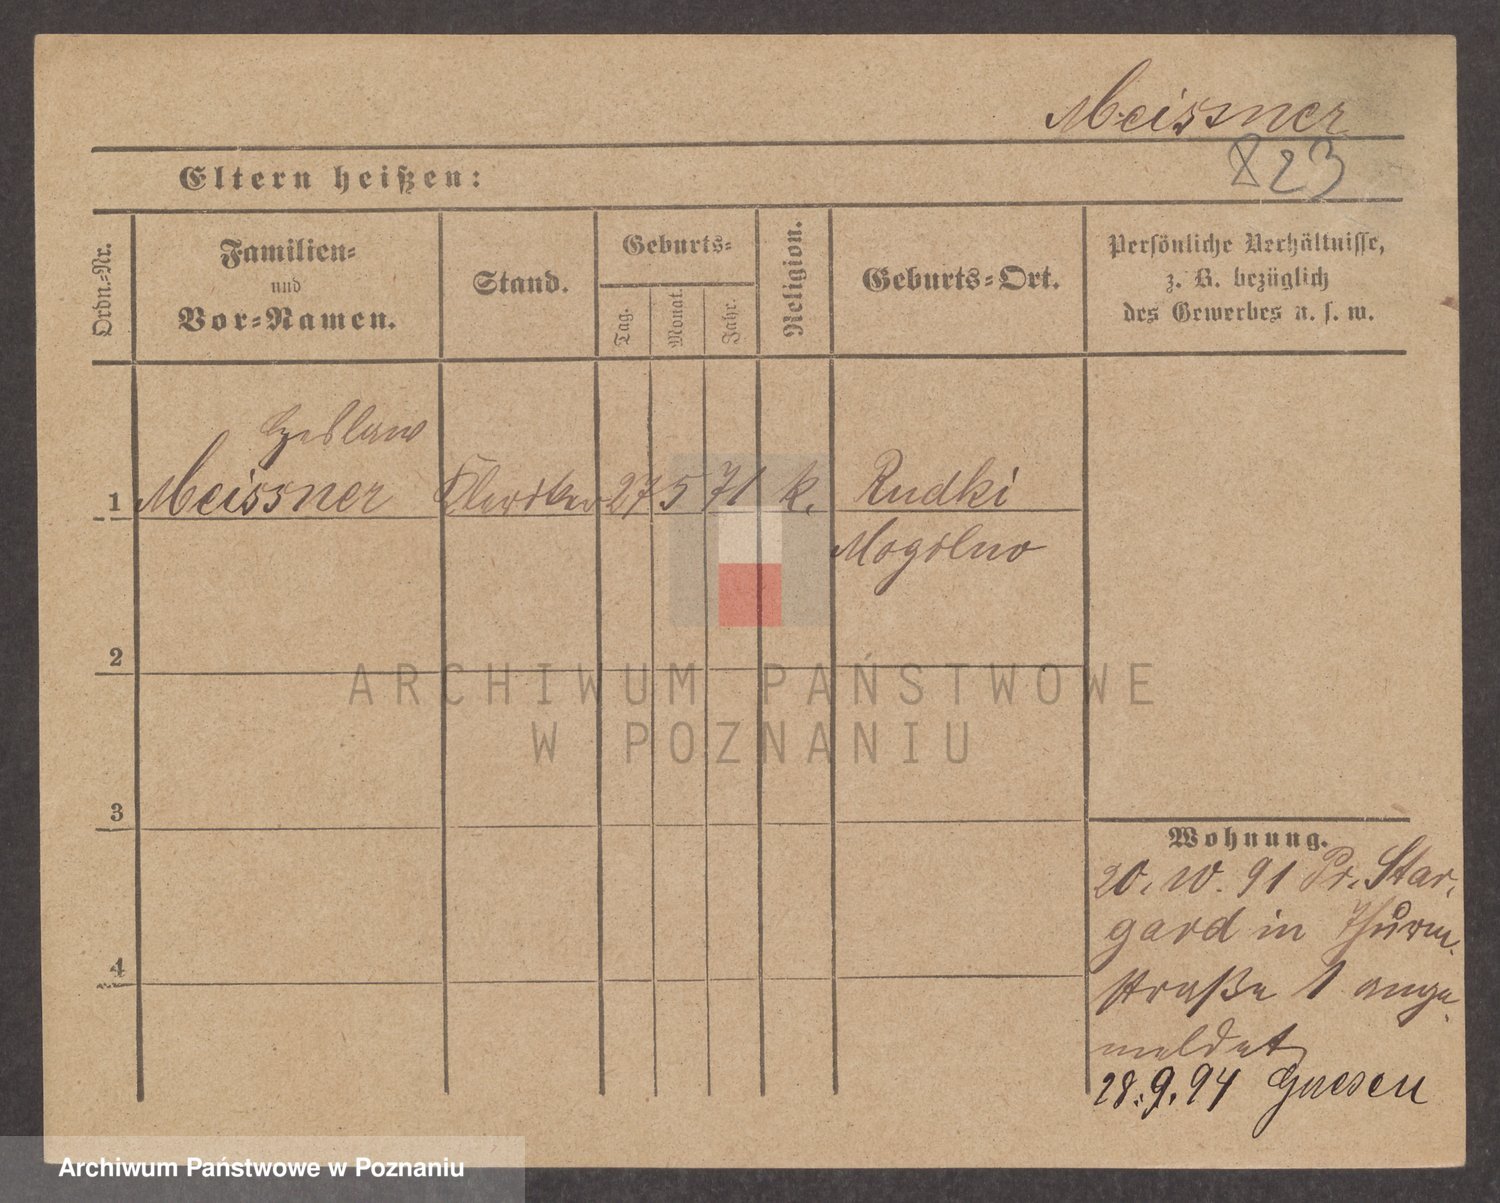 Meissner
823
Eltern heißen:
Ordn.-Nr.
Familien-
und
Vor-Namen.
Stand.
Geburts-
Tag.
Monat.
Jahr.
Religion.
Geburts-Ort.
Persönliche Verhältnisse,
z. B. bezüglich
des Gewerbes u. s. w.
Czeslaw
1 Meissner Kleriker 27 5 71 k. Rudki
Mogolno
2
3
4
Wohnung.
20. 10. 91 Pr. Star-
gard in Thurm-
straße 1 ange-
meldet
28.9.94 Gnesen
ARCHIWUM PAŃSTWOWE
W POZNANIU
Archiwum Państwowe w Poznaniu